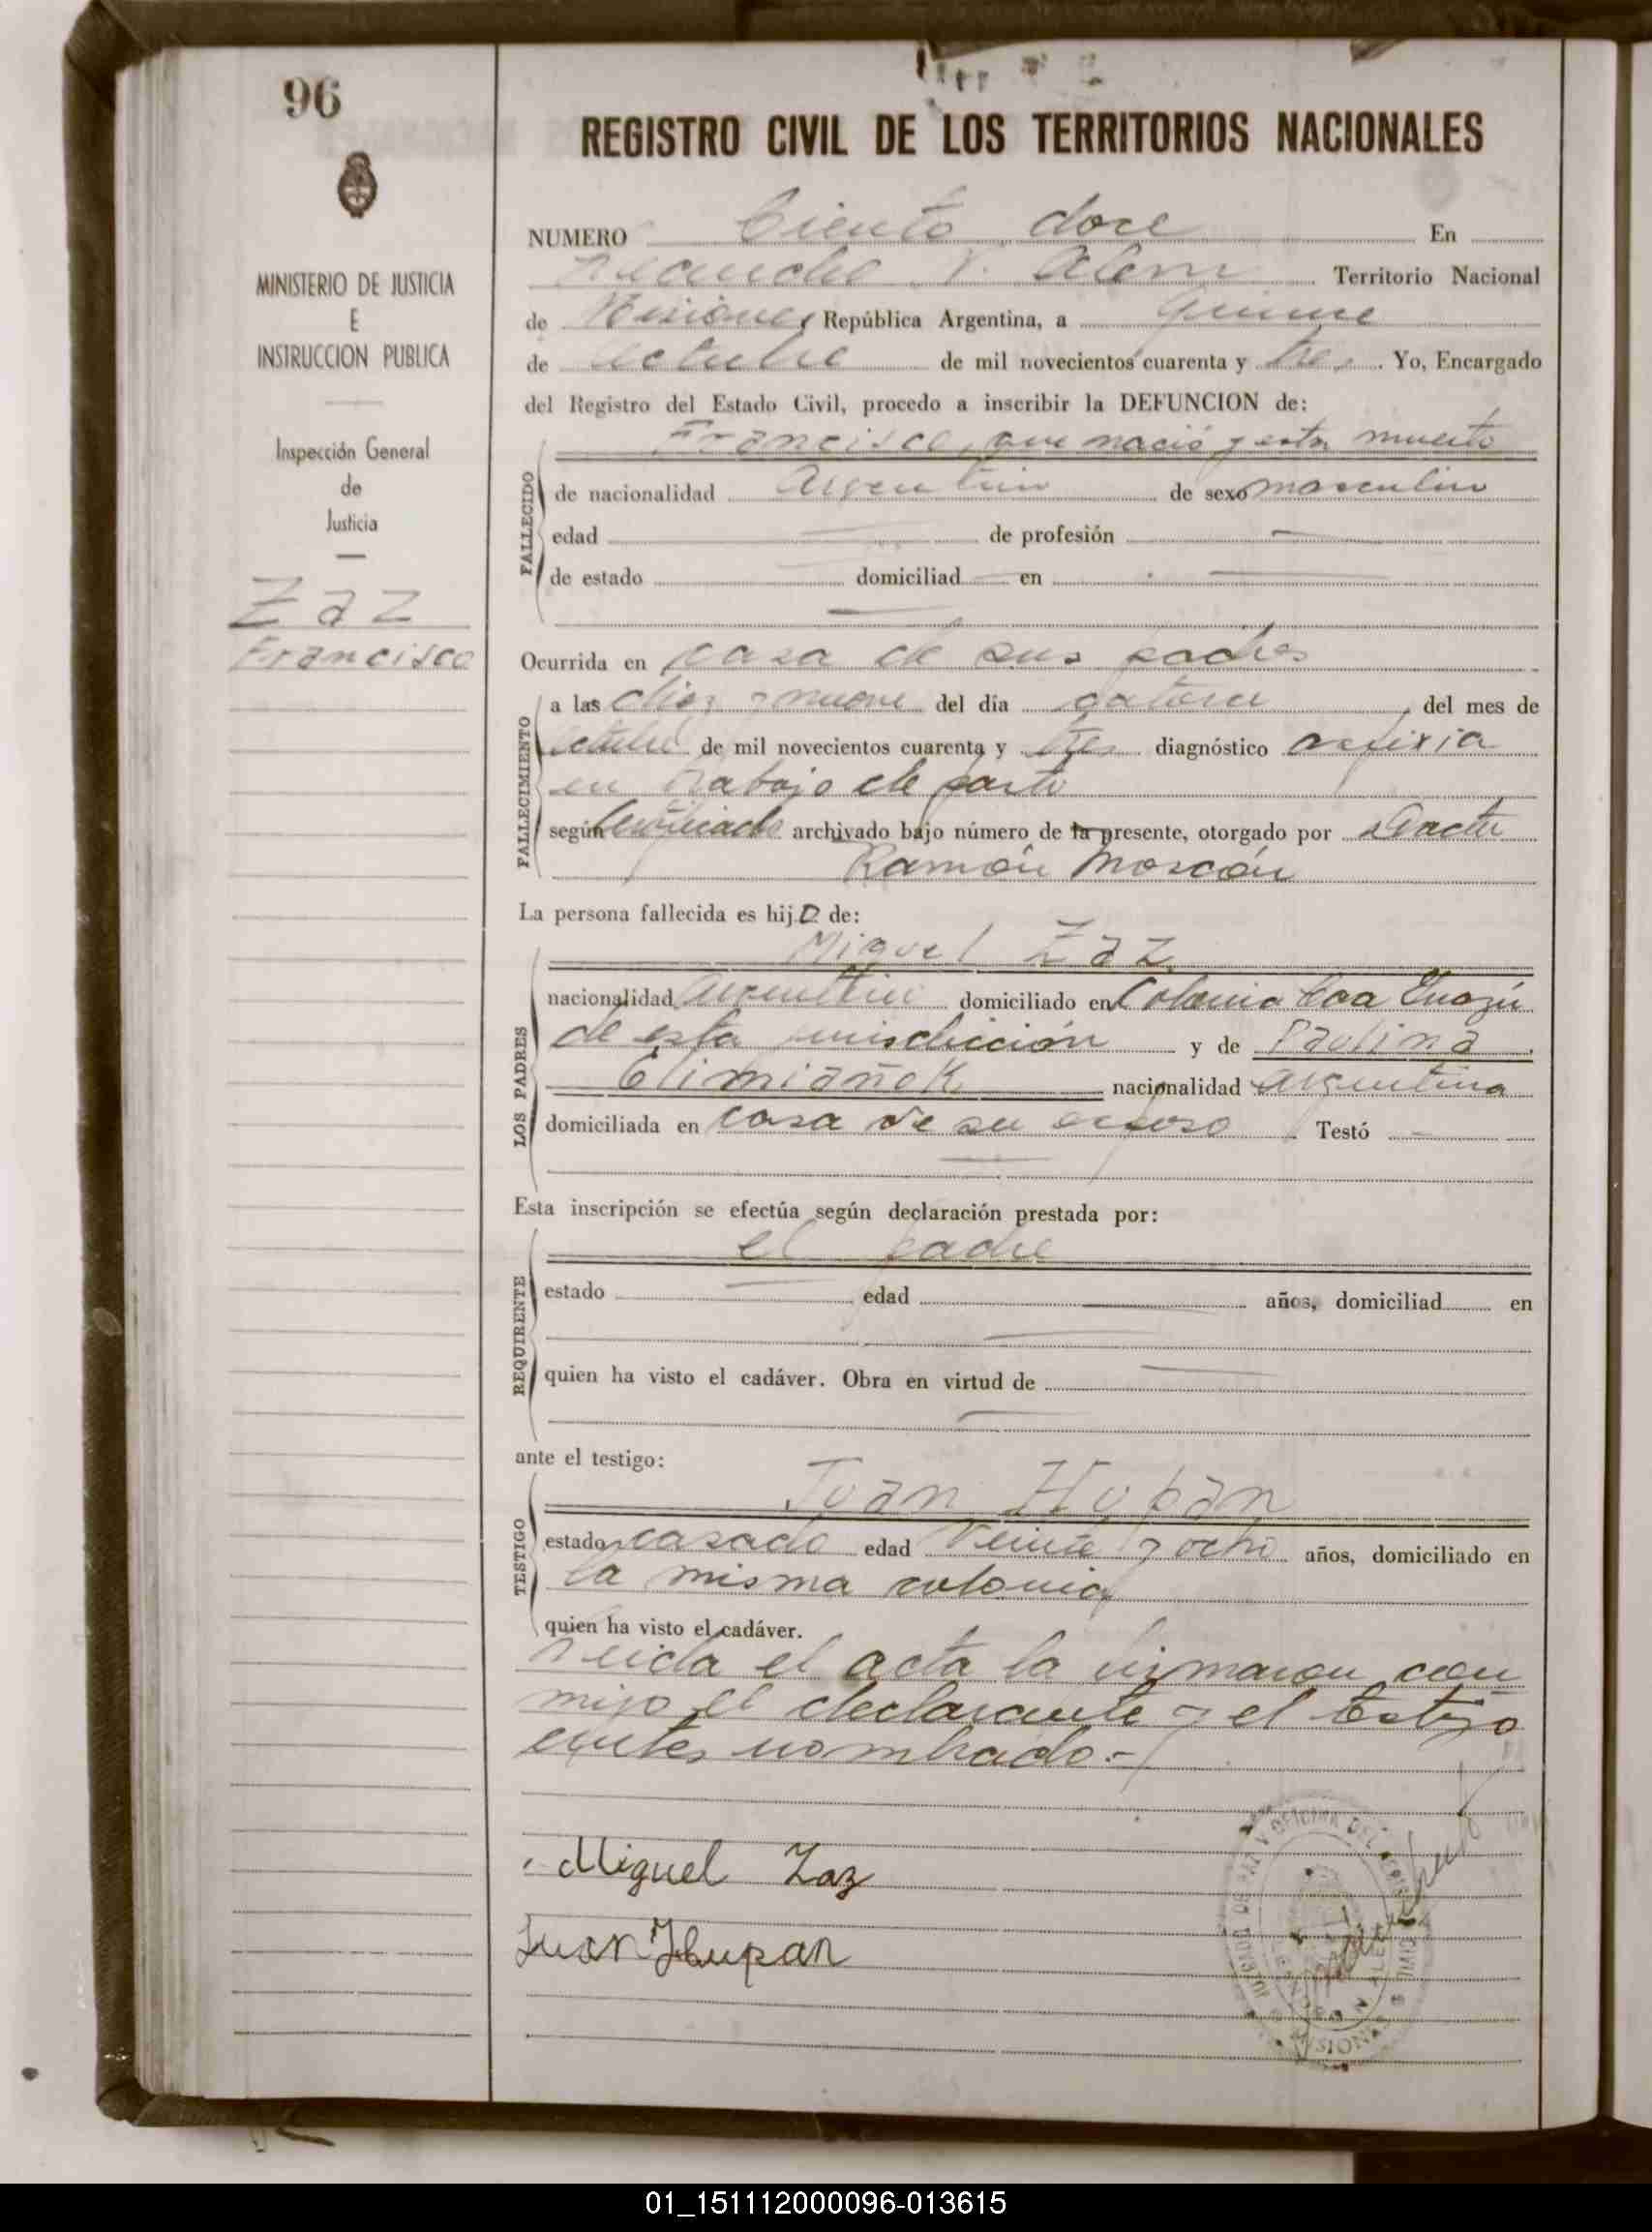 96
MINISTERIO DE JUSTICIA
E
INSTRUCCION PUBLICA
Inspección General
de
Justicia
Zaz
Francisco
REGISTRO CIVIL DE LOS TERRITORIOS NACIONALES
NUMERO Ciento doce En
Leandro N. Alem Territorio Nacional
de Misiones República Argentina, a quince
de octubre de mil novecientos cuarenta y tres. Yo, Encargado
del Registro del Estado Civil, procedo a inscribir la DEFUNCION de:
Francisco, que nació y esta muerto
FALLECIDO
de nacionalidad Argentino de sexo masculino
edad — de profesión —
de estado — domiciliad — en —
—
Ocurrida en casa de sus padres
FALLECIMIENTO
a las diez y nueve del día catorce, del mes de
octubre de mil novecientos cuarenta y tres diagnóstico asfixia
en trabajo de parto
según certificado archivado bajo número de la presente, otorgado por Doctor
Ramón Moscón
La persona fallecida es hijo de:
LOS PADRES
Miguel Zaz
nacionalidad argentino domiciliado en Colonia Caa Guazú
de esta jurisdicción y de Paulina
Climiañok nacionalidad argentina
domiciliada en casa de su esposo Testó —
—
Esta inscripción se efectúa según declaración prestada por:
REQUIRENTE
el padre
estado — edad — años, domiciliad en
—
quien ha visto el cadáver. Obra en virtud de —
—
ante el testigo:
TESTIGO
Juan Hupan
estado casado edad veinte y ocho años, domiciliado en
la misma colonia
quien ha visto el cadáver.
Leida el acta la firmaron con
migo el declarante y el testigo
antes nombrado.-
Miguel Zaz
Juan Hupan
JUZGADO DE PAZ Y OFICINA DEL REGISTRO CIVIL
LEANDRO N. ALEM
MISIONES
01_151112000096-013615